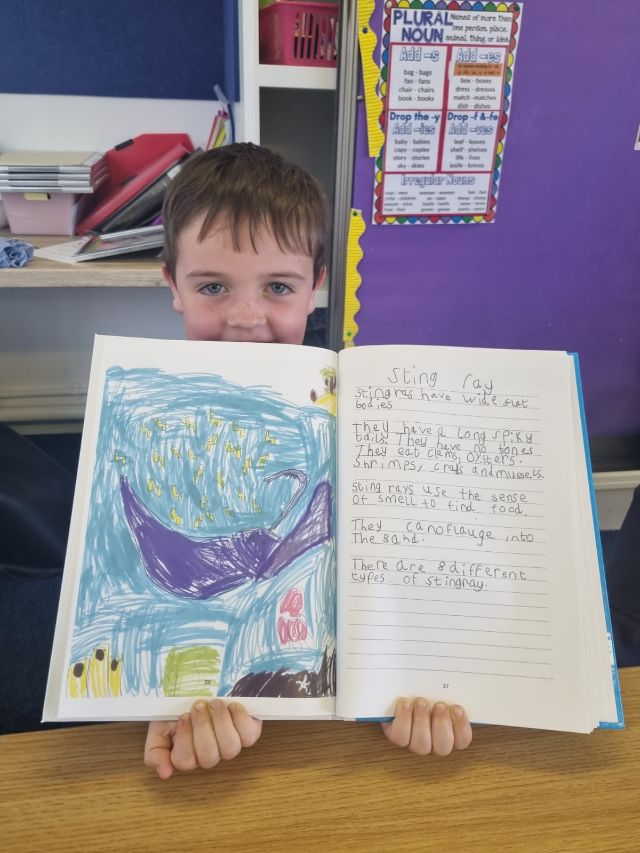 PLURAL NOUN
Names of more than one person, place, animal, thing or idea
Add -s
bag - bags
fan - fans
chair - chairs
book - books
Add -es
box - boxes
dress - dresses
match - matches
dish - dishes
Drop the -y
Add -ies
baby - babies
copy - copies
story - stories
sky - skies
Drop -f & -fe
Add -ves
leaf - leaves
shelf - shelves
life - lives
knife - knives
Irregular Nouns
Sting ray
Sting ras have wide flat
bodies
They have a long spiky
tails. They have no bones
They eat clams, Oysters.
Shrimps, crabs and mussels.
Sting rays use the sense
Of smell to find food.
They camoflauge into
The sand.
There are 8 different
types of stingray.
26
27